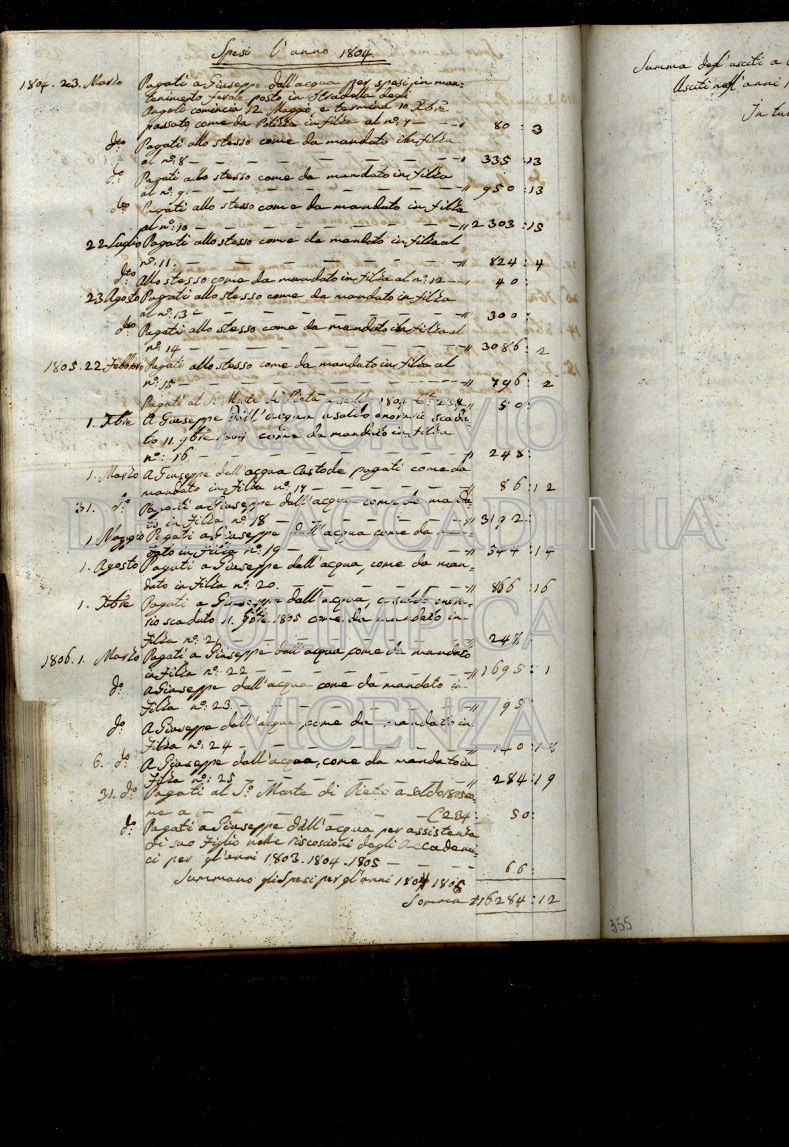 Spesi l'anno 1804
1804. 23. Marzo Pagati a Giuseppe dall'acqua per spesi in man=
tenimento ferale posto in Stradella degli
Pagati comincia 12 Maggio, e termina 10 Xbre
passato, come da Polizza in filza al nº. 7 — — " 80 : 3
dto Pagati allo stesso come da mandato in filza
al nº. 8 — — — — — — " 335 : 13
dº. Pagati allo stesso come da mandato in filza
al nº. 9. — — — — — — " 950 : 13
dto Pagati allo stesso come da mandato in filza
al nº. 10 — — — — — — " 2303 : 15
22 Luglio Pagati allo stesso come da mandato in filza al
nº. 11. — — — — — — " 824 : 4
dto Allo stesso come da mandato in filza al nº. 12 — " 40 :
23 Agosto Pagati allo stesso come da mandato in filza
al nº. 13 — — — — — — " 300 :
dto Pagati allo stesso come da mandato in filza al
nº. 14 — — — — — — " 3086 : 2
1805. 22 Febbro Pagati allo stesso come da mandato in filza al
nº. 15 — — — — — — " 796 : 2
Pagati al Sº. Monte di Pietà a saldo 1804 Cº. 234 " 50 :
1. Xbre A Giuseppe dall'acqua a saldo onorario scadu
to 11. 9bre 1804 come da mandato in filza
nº. 16 — — — — — " 248 :
1. Marzo A Giuseppe dall'acqua Custode pagati come da
mandato in filza nº. 17 — — — — " 86 : 12
31. dº. Pagati a Giuseppe dall'acqua come da manda
to in filza nº. 18 — — — — " 3192 :
1 Maggio Pagati a Giuseppe dall'acqua come da man=
dato in filza nº. 19 — — — — " 544 : 14
1. Agosto Pagati a Giuseppe dall'acqua, come da man=
dato in filza nº. 20. — — — — " 866 : 16
1. Xbre Pagati a Giuseppe dall'acqua, a saldo onora=
rio scaduto 11. 9bre. 1805 come da mandato in
filza nº. 21 — — — — " 248
1806. 1. Marzo Pagati a Giuseppe dall'acqua come da mandato
in filza nº. 22 — — — — " 1695 : 1
dº. A Giuseppe dall'acqua come da mandato in
filza nº. 23. — — — — " 95 :
dº. A Giuseppe dall'acqua, come da mandato in
filza nº. 24 — — — — " 140 : 18
6. dº. A Giuseppe dall'acqua, come da mandato in
filza nº. 25 — — — — " 284 : 19
31. dº. Pagati al Sº. Monte di Pietà a saldo 1805 co
me a — — — Cº 234 : 50 :
dº. Pagati a Giuseppe dall'acqua per assistenza
di suo Figlio nelle riscossioni degli Accademi=
ci per gl'anni 1803. 1804. 1805 — — — 66 :
Summano gli Spesi per gl'anni 1804 1805
Somma 16284 : 12
Summa degl'usciti a
Usciti nell'anni
In tu
355
ARCHIVIO
DELL'ACCADEMIA
OLIMPICA
VICENZA